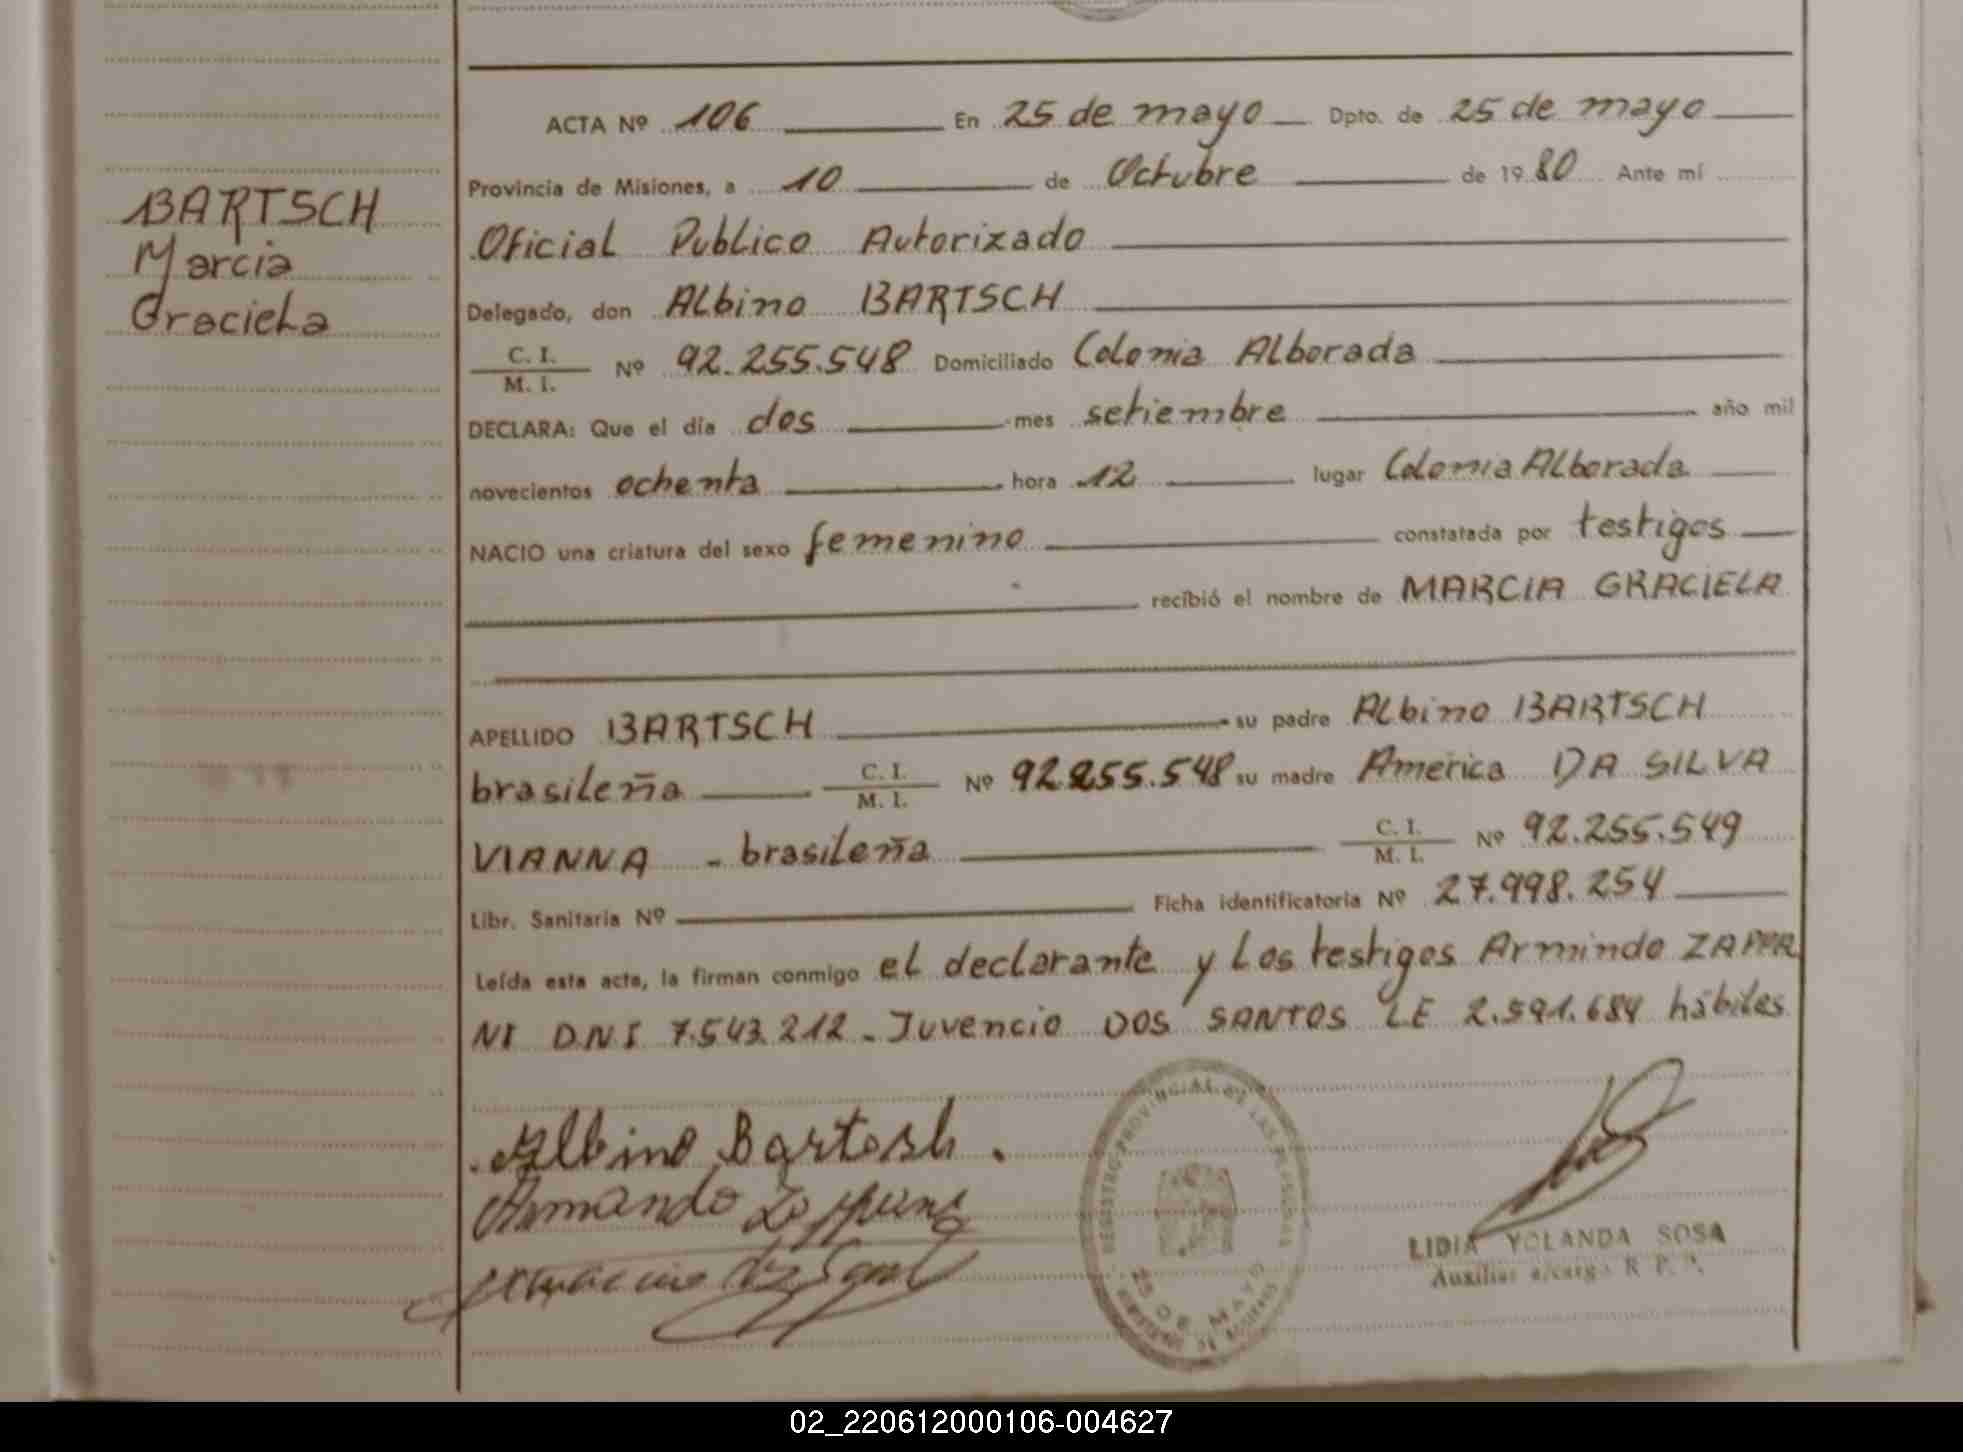 ACTA Nº 106 En 25 de mayo Dpto. de 25 de mayo
Provincia de Misiones, a 10 de Octubre de 1980 Ante mí
BARTSCH
Marcia
Graciela
Oficial Publico Autorizado
Delegado, don Albino BARTSCH
C. I.
M. I. Nº 92.255.548 Domiciliado Colonia Alborada
DECLARA: Que el día dos mes setiembre año mil
novecientos ochenta hora 12 lugar Colonia Alborada
NACIO una criatura del sexo femenino constatada por testigos
recibió el nombre de MARCIA GRACIELA
APELLIDO BARTSCH su padre Albino BARTSCH
brasileña C. I. M. I. Nº 92.255.548 su madre América DA SILVA
VIANNA - brasileña C. I. M. I. Nº 92.255.549
Libr. Sanitaria Nº Ficha identificatoria Nº 27.998.254
Leída esta acta, la firman conmigo el declarante y los testigos Armindo ZAPPA
NI DNI 7.543.212 - Juvencio DOS SANTOS LE 2.591.684 hábiles
Albino Bartosh.
Armando
REGISTRO PROVINCIAL DE LAS PERSONAS
25 DE MAYO
LIDIA YOLANDA SOSA
Auxiliar a/cargo R. P. P.
02_220612000106-004627